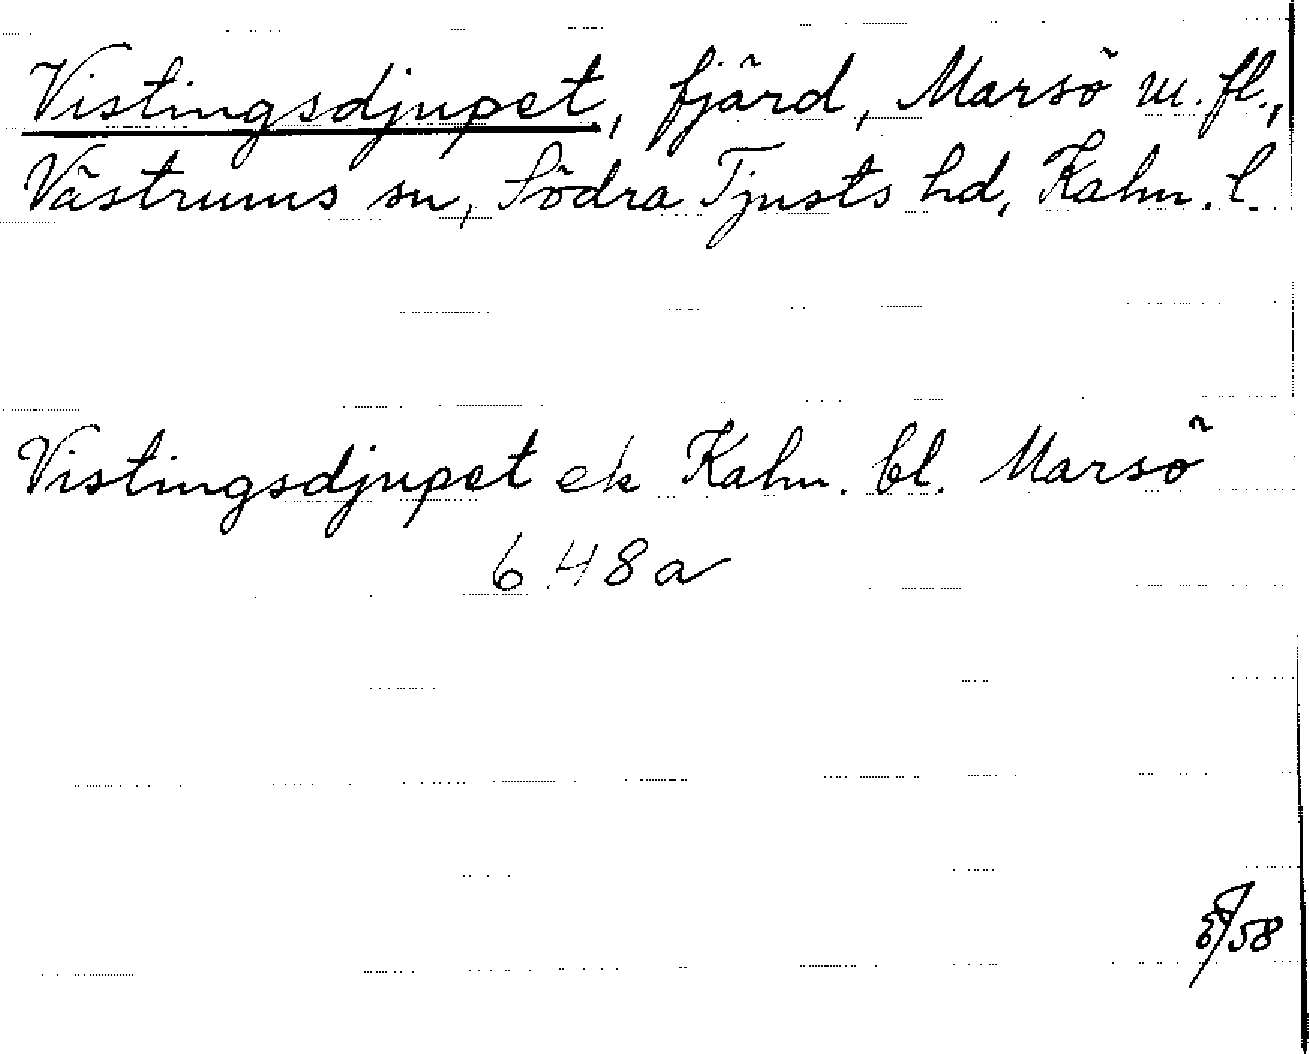 Vistingsdjupet, fjärd, Marsö m. fl.,
Västrums sn, Södra Tjusts hd, Kalm. l.
Vistingsdjupet ek Kalm. bl. Marsö
6 H 8 a
/58